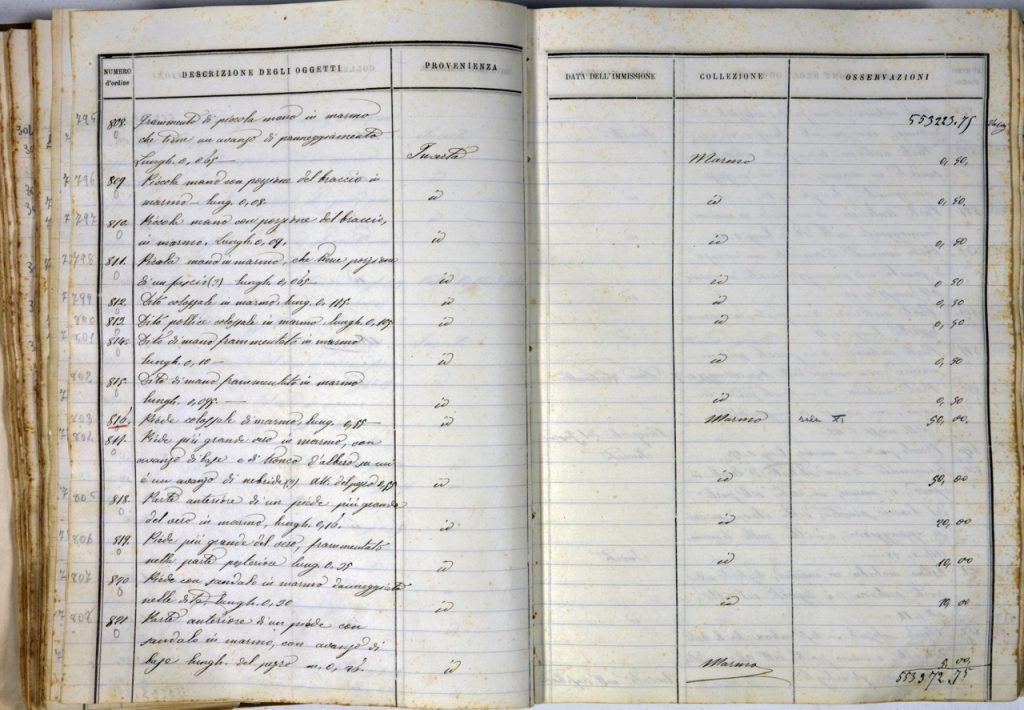 NUMERO d'ordine DESCRIZIONE DEGLI OGGETTI PROVENIENZA DATA DELL'IMMISSIONE COLLEZIONE OSSERVAZIONI
553223.75
795 808. Frammento di piccola mano in marmo
che tiene un avanzo di panneggiamento
Lungh. 0,065 — Incerta Marmo 0,50,
7796 809. Piccola mano con porzione del braccio in
0 marmo — lung. 0,08 id id 0,50.
7797 810. Piccola mano con porzione del braccio,
0 in marmo. Lungh. 0,09. id id 0,50
7798 811. Piccola mano in marmo, che tiene porzione
0 d'un fascio (?) lungh. 0,065 — id id 0,50
7799 812. Dito colossale in marmo lung. 0,115 id id 0,50
800 813. Dito pollice colossale in marmo lungh. 0,105 id id 0,50
801 814. Dito di mano frammentato in marmo
0 lungh. 0,10 — id id 0,50
802 815. Dito di mano frammentato in marmo
lungh. 0,095 — id id 0,50
803 816. Piede colossale di marmo, lung. 0,55 — id Marmo 50,00.
804 817. Piede più grande del vero in marmo, con
avanzo di base e di tronco d'albero su cui
è un avanzo di nebride (?) Alt. del pezzo 0,55 id id 50,00
7805 818. Parte anteriore di un piede più grande
0 del vero in marmo, lungh. 0,16. id id 20,00
806 819. Piede più grande del vero, frammentato
0 nella parte posteriore lung. 0.25 id id 10,00
807 820 Piede con sandalo in marmo danneggiato
0 nelle dita, lungh. 0,20 id id 10,00
808 821. Parte anteriore di un piede con
0 sandalo in marmo, con avanzo di
base lungh. del pezzo m. 0,26. id Marmo 5,00,
553372.75